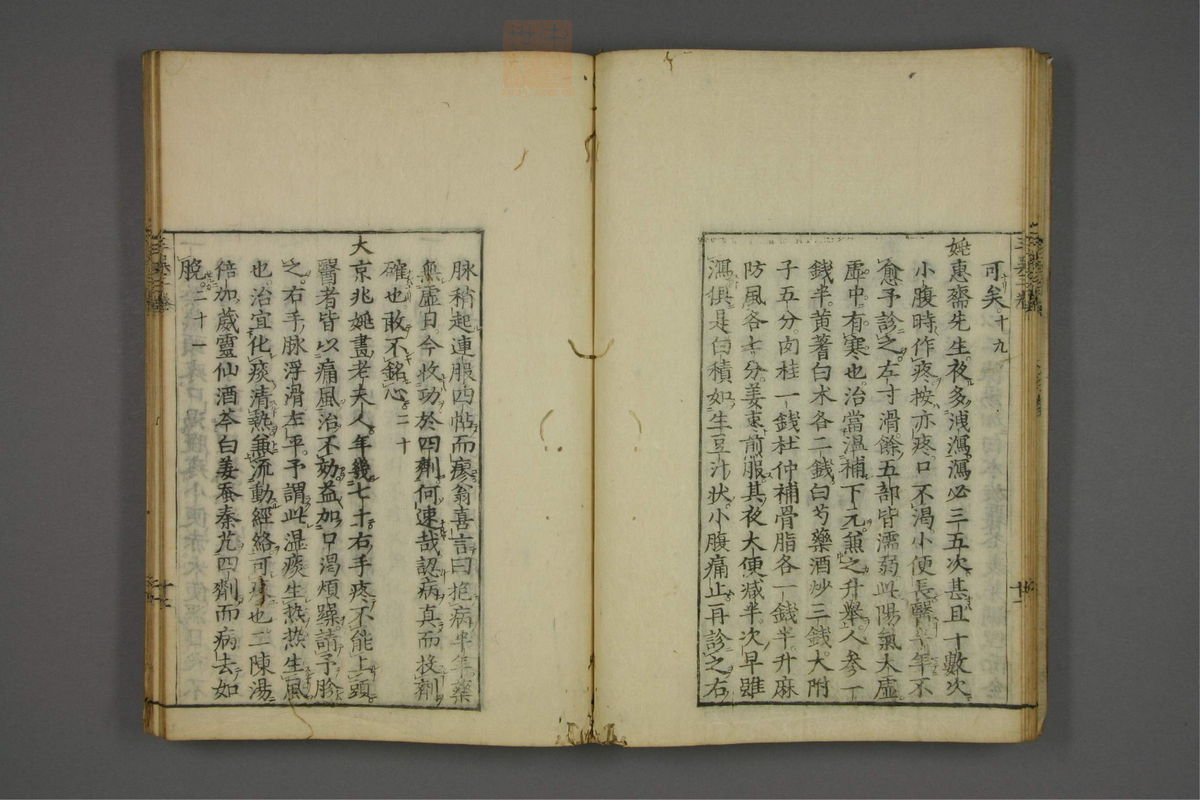 可矣十九
姚惠齋先生夜多洩瀉瀉必三五次甚且十數次
小腹時作疼按亦疼口不渴小便長醫年年不
愈予診之左寸滑餘五部皆濡弱此陽氣大虛
虛中有寒也治當溫補下元兼之升舉人參一
錢半黃蓍白朮各二錢白芍藥酒炒三錢大附
子五分肉桂一錢杜仲補骨脂各一錢半升麻
防風各七分姜棗煎服其夜大便減半次早雖
瀉俱是白積如生豆汁狀小腹痛止再診之右
脉稍起連服四帖而瘳翁喜言曰抱病半年藥
無虛日今收功於四劑何速哉認病真而投劑
確也敢不銘心二十
大京兆姚畫老夫人年幾七十右手疼不能上頭
醫者皆以痛風治不効益加口渴煩躁請予診
之右手脉浮滑左平予謂此濕痰生熱熱生風
也治宜化痰清熱兼流動經絡可瘳也二陳湯
倍加葳靈仙酒芩白姜蚕秦艽四劑而病去如
脫二十一